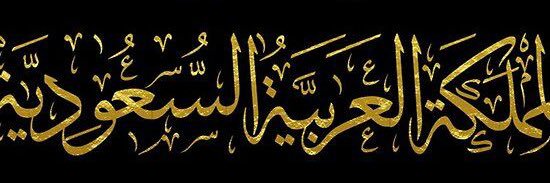 المملكة العربيَّة السُّعُوديَّة